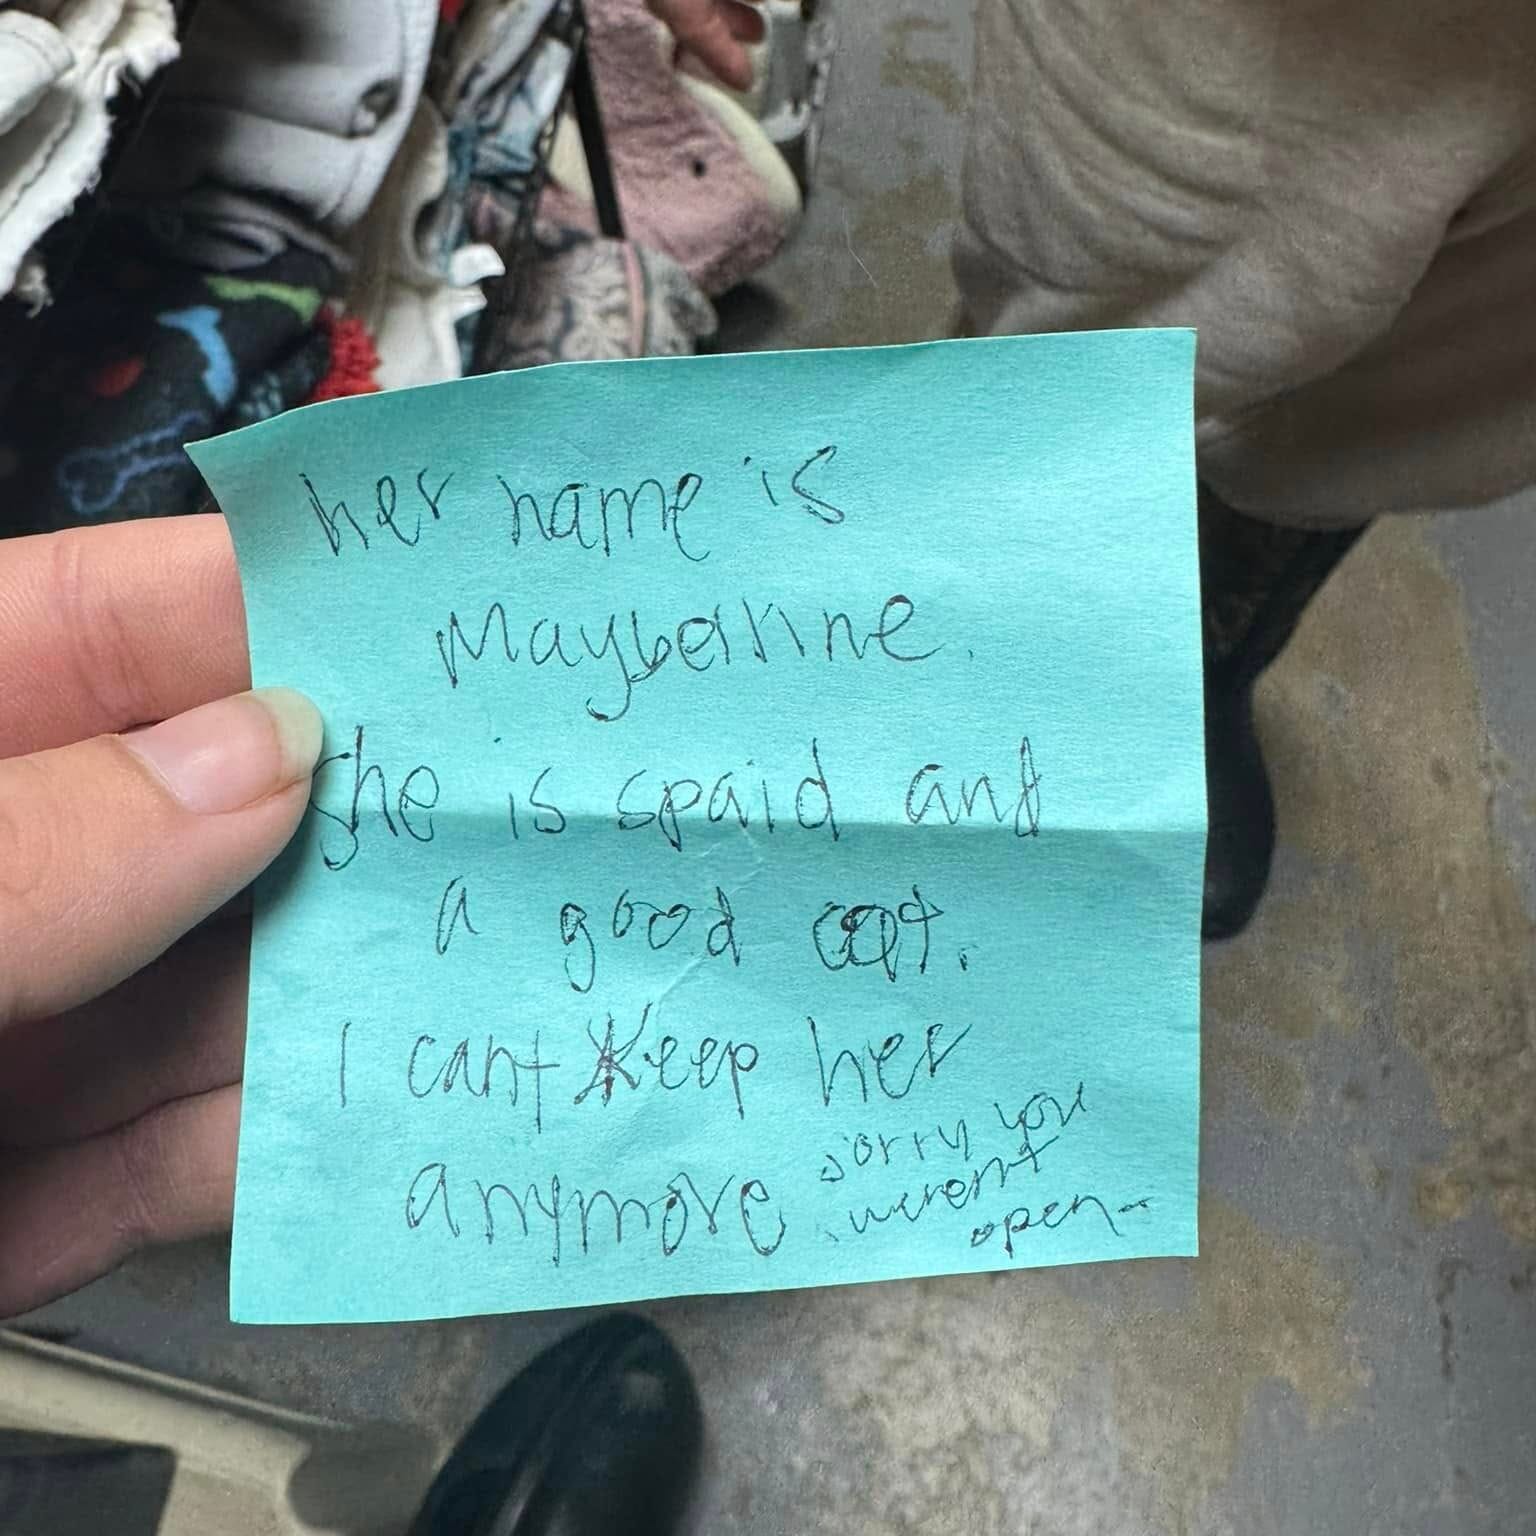 her name is
Maybelline.
She is spaid and
a good cat.
I cant keep her
anymore
sorry you
werent
open-